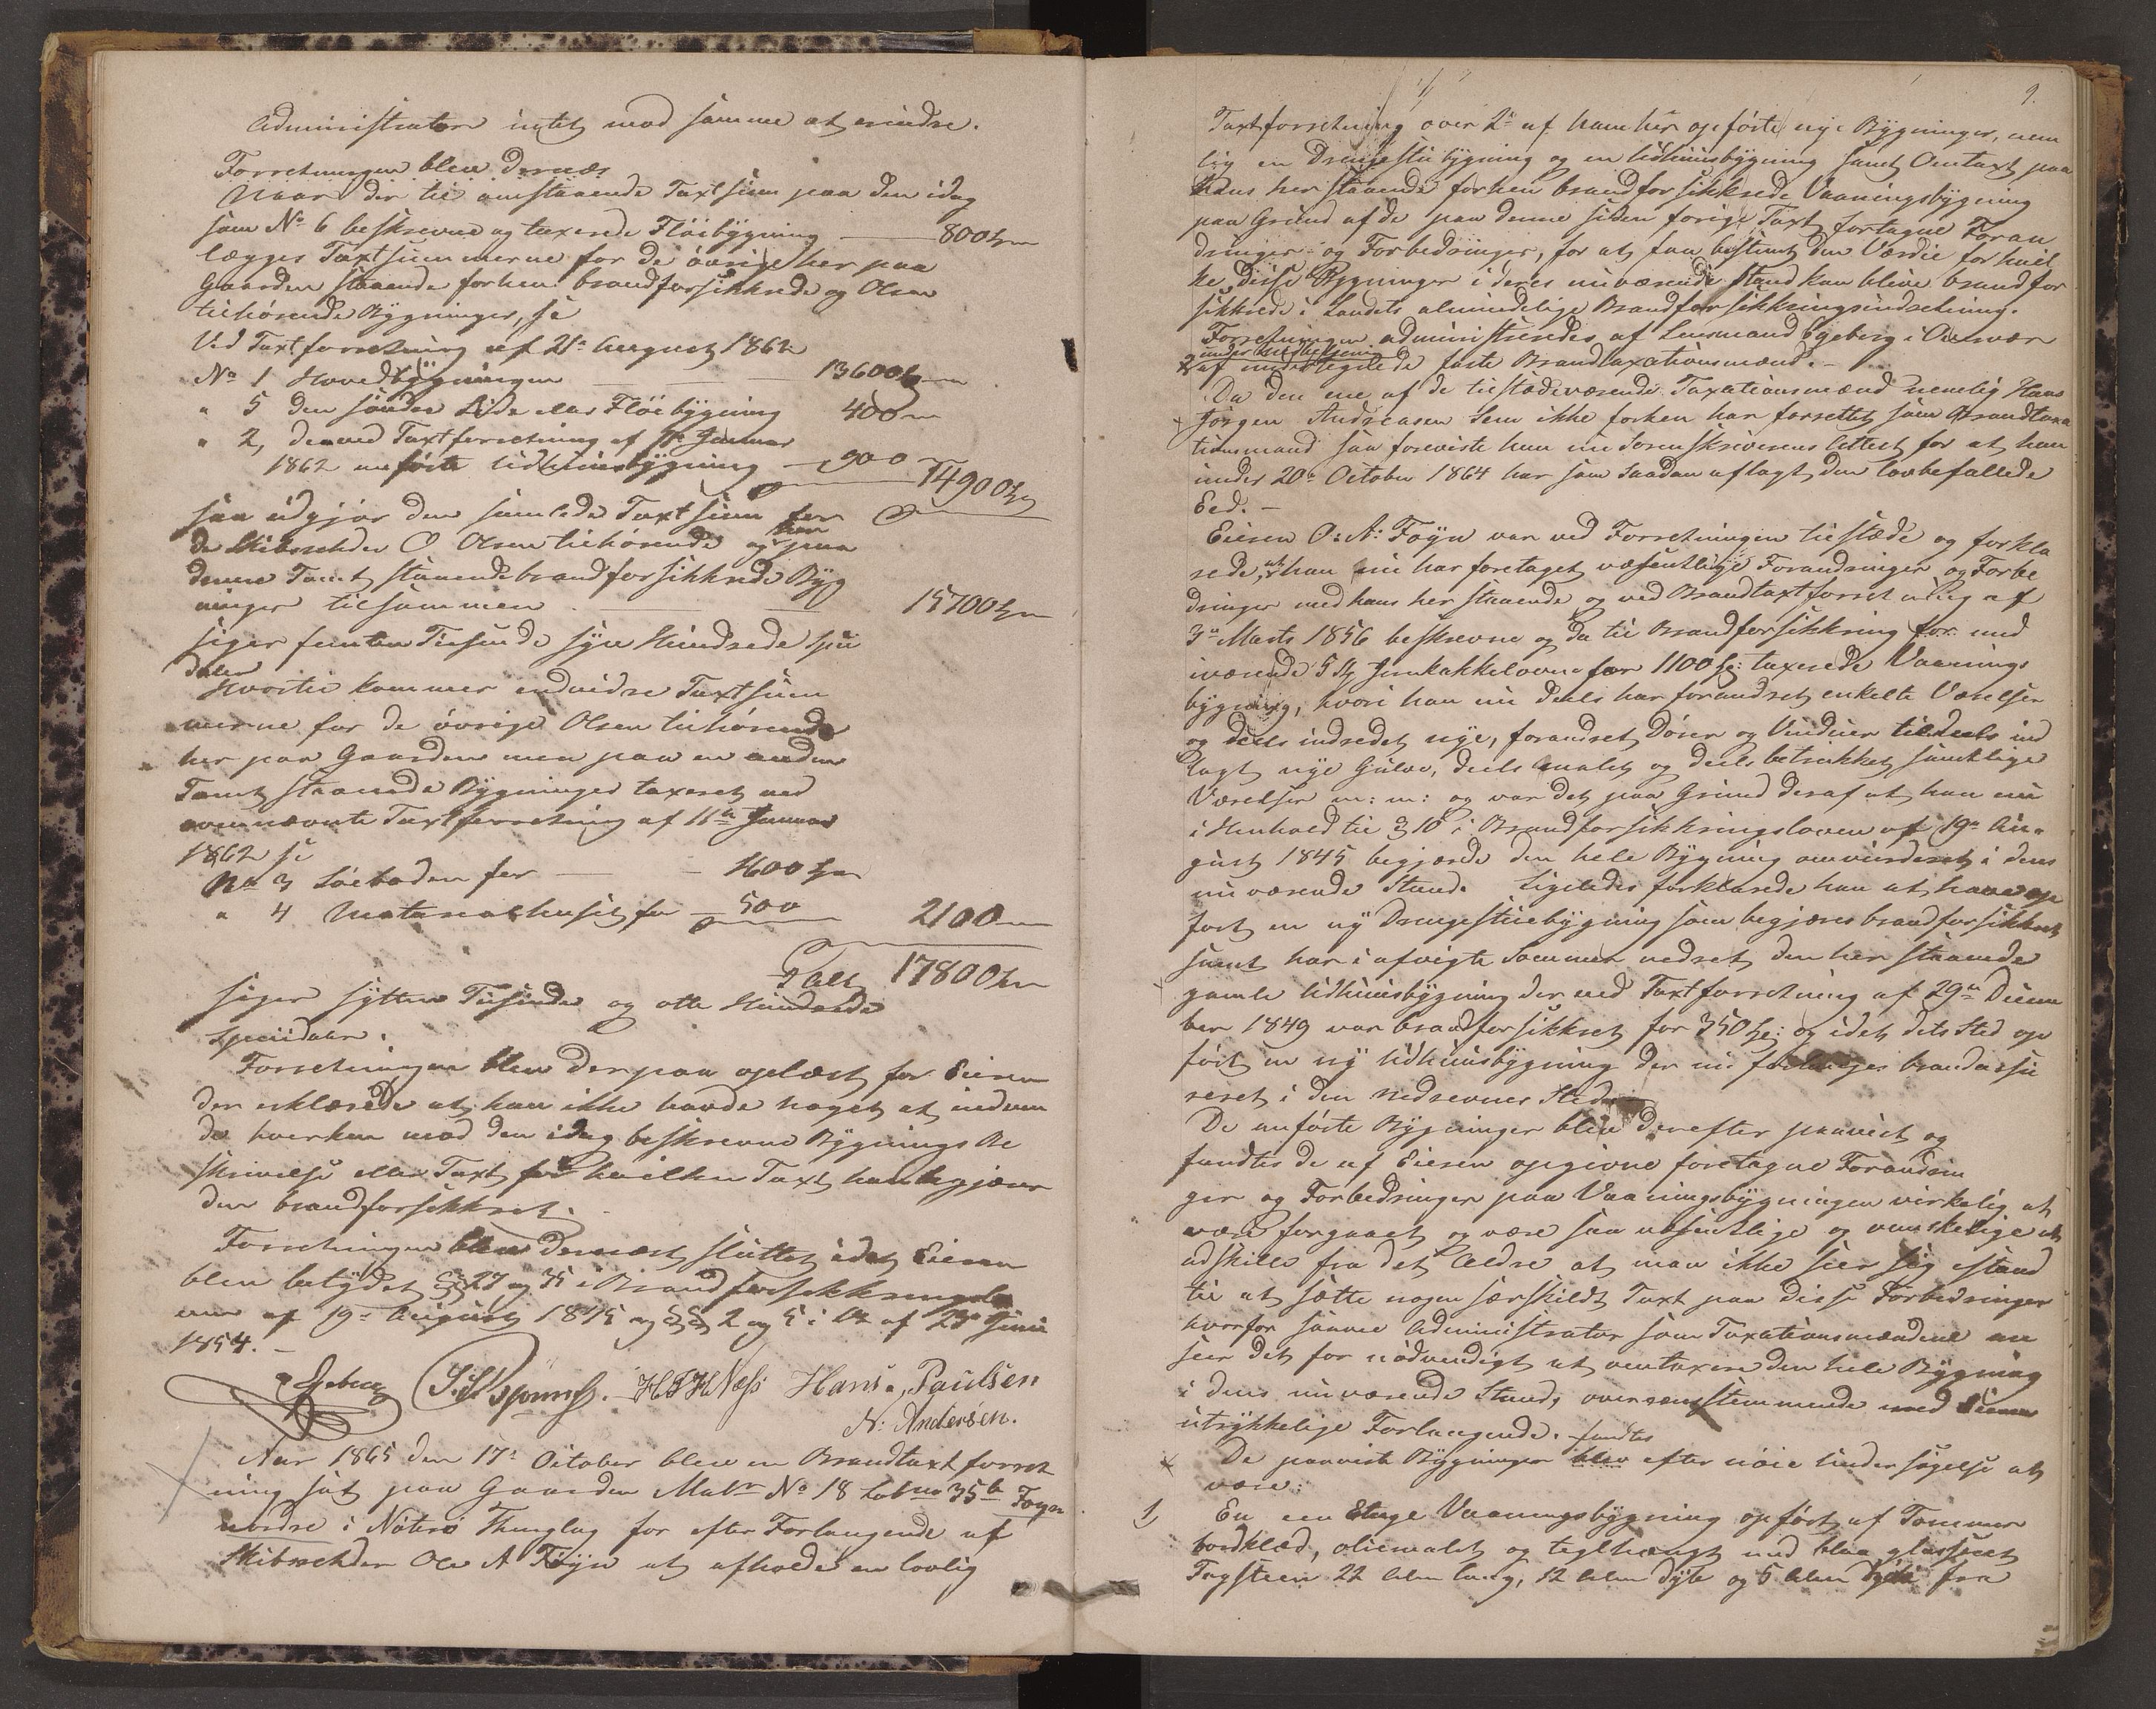 Administrator intet mod samme at erindre.
Forretningen blev dernæs
Naar der til omstaaende Taxtsum paa den idag
som No 6 beskrevne og taxerede Flöibygning 800
lægges Taxtsummerne for de övrige her paa
Gaarden staaende forhen brandforsikkrede og Olsen
tilhörende Bygninger, se
Ved Taxtforretning af 21de August 1862
No 1 Hovedbygningen 13600
" 5 den söndre Side eller Flöibygning 400
" 2, den ved Taxtforretning af 11te Januar
1862 anförte Udhuusbygning 900
14900
saa udgjör den samlede Taxtsum for
de Skibsrheder O Olsen tilhörende og her paa
denne Tomt staaende brandforsikkrede Byg
ninger tilsammen 15700
siger femten Tusinde syv Hundrede Spe
daler
Hvortil kommer endvidere Taxtsum
merne for de övrige Olsen tilhörende
her paa Gaarden men paa en anden
Tomt staaende Bygninger taxeret ved
ovennævnte Taxtforretning af 11te Januar
1862 se
No 3 Söeboden for 1600
" 4 Materialhuset for 500 2100
Ialt 17800
siger sytten Tusinde og otte Hundrede
Speciedaler.
Forretningen blev derpaa oplæst for Eieren
der erklærede at han ikke havde noget at indven
de hverken mod den idag beskrevne Bygnings Be
skrivelse eller Taxt for hvilken Taxt han begjærer
den brandforsikkret.
Forretningen blev dernæst sluttet idet Eieren
blev betydet §§ 27 og 35 i Brandforsikkringslo
ven af 19de August 1845 og §§ 2 og 5 i Lov af 23de Juni
1854.
Egeberg H Næss Hans Paulsen
N. Andersen.
Aar 1865 den 17de October blev en Brandtaxtforret
ning sat paa Gaarden Matr No 18 Lobno 35b Föyn
nordre i Nöterö Thinglag for efter Forlangende af
Skibsrheder Ole A Föyn at afholde en lovlig
9.
Taxtforretning over 2de af ham her opförte nye Bygninger, nem
lig en Drengestubygning og en Udhuusbygning samt Omtaxt paa
hans her staaende forhen brandforsikkrede Vaaningsbygning
paa Grund af de paa denne siden forrige Taxt foretagne Foran
dringer og Forbedringer, for at faa bestemt den Værdie for hvil
ke disse Bygninger i deres nuværende Stand kan blive brandfor
sikkrede i Landets almindelige Brandforsikkringsindretning.
Forretningen administreredes af Lensmand Egeberg i Overvær
under Medvirkning
af undertegnede faste Brandtaxationsmænd.
Da den ene af de tilstedeværende Taxationsmænd nemlig Hans
Jörgen Andreasen Sem ikke forhen har forrettet som Brandtaxa
tionsmand saa foreviste han nu Sorenskriverens Attest for at han
under 20de October 1864 har som saadan aflagt den lovbefallede
Eed.
Eieren O: A: Föyn var ved Forretningen tilstæde og forkla
rede, at han nu har foretaget væsentlige Forandringer og Forbe
dringer med hans her staaende og ved Brandtaxtforretning af
3die Marts 1856 beskrevne og da til Brandforsikkring for med
iværende 5 St Jernkakkelovne for 1100 taxerede Vaanings
bygning, hvori han nu deels har forandret enkelte Værelser
og deels indredet nye, forandret Döre og Vinduer tildeels ind
lagt nye Gulve, deels malet og deels betrukket samtlige
Værelser m: m: og var det paa Grund deraf at han nu
i Henhold til § 10 i Brandforsikkringsloven af 19de Au-
gust 1845 begjærede den hele Bygning omvurderet i dens
nuværende Stand. Ligeledes forklarede han at have op
fört en ny Drengestuebygning som begjæres brandforsikkret
samt har i afvigte Sommer nedrevet den her staaende
gamle Udhuusbygning der ved Taxtforretning af 29de Decem
ber 1849 var brandforsikkret for 350 og i dets Sted op
fört en ny Udhuusbygning der nu forlanges brandassu
reret i den nedrevnes Sted.
De anförte Bygninger blev derefter paavist og
fandtes de af Eieren opgivne foretagne Forandrin
ger og Forbedringer paa Vaaningsbygningen virkelig at
være foregaaet og være saa væsentlige og vanskelige at
adskille fra det Ældre at man ikke seer sig istand
til at sætte nogen særskildt Taxt paa disse Forbedringer
hvorfor saavel Administrator som Taxationsmændene an
seer det for nödvendigt at omtaxere den hele Bygning
i dens nuværende Stand, overensstemmende med Eierens
utrykkelige Forlangende. fandtes
De paaviste Bygninger blev efter nöie Undersögelse at
være:
1, En een Etage Vaaningsbygning opfört af Tömmer
bordklæd, oliemalet og teglhængt med blaa glasseret
Tagsteen 22 Alen lang, 12 Alen dyb og 5 Alen höi fra